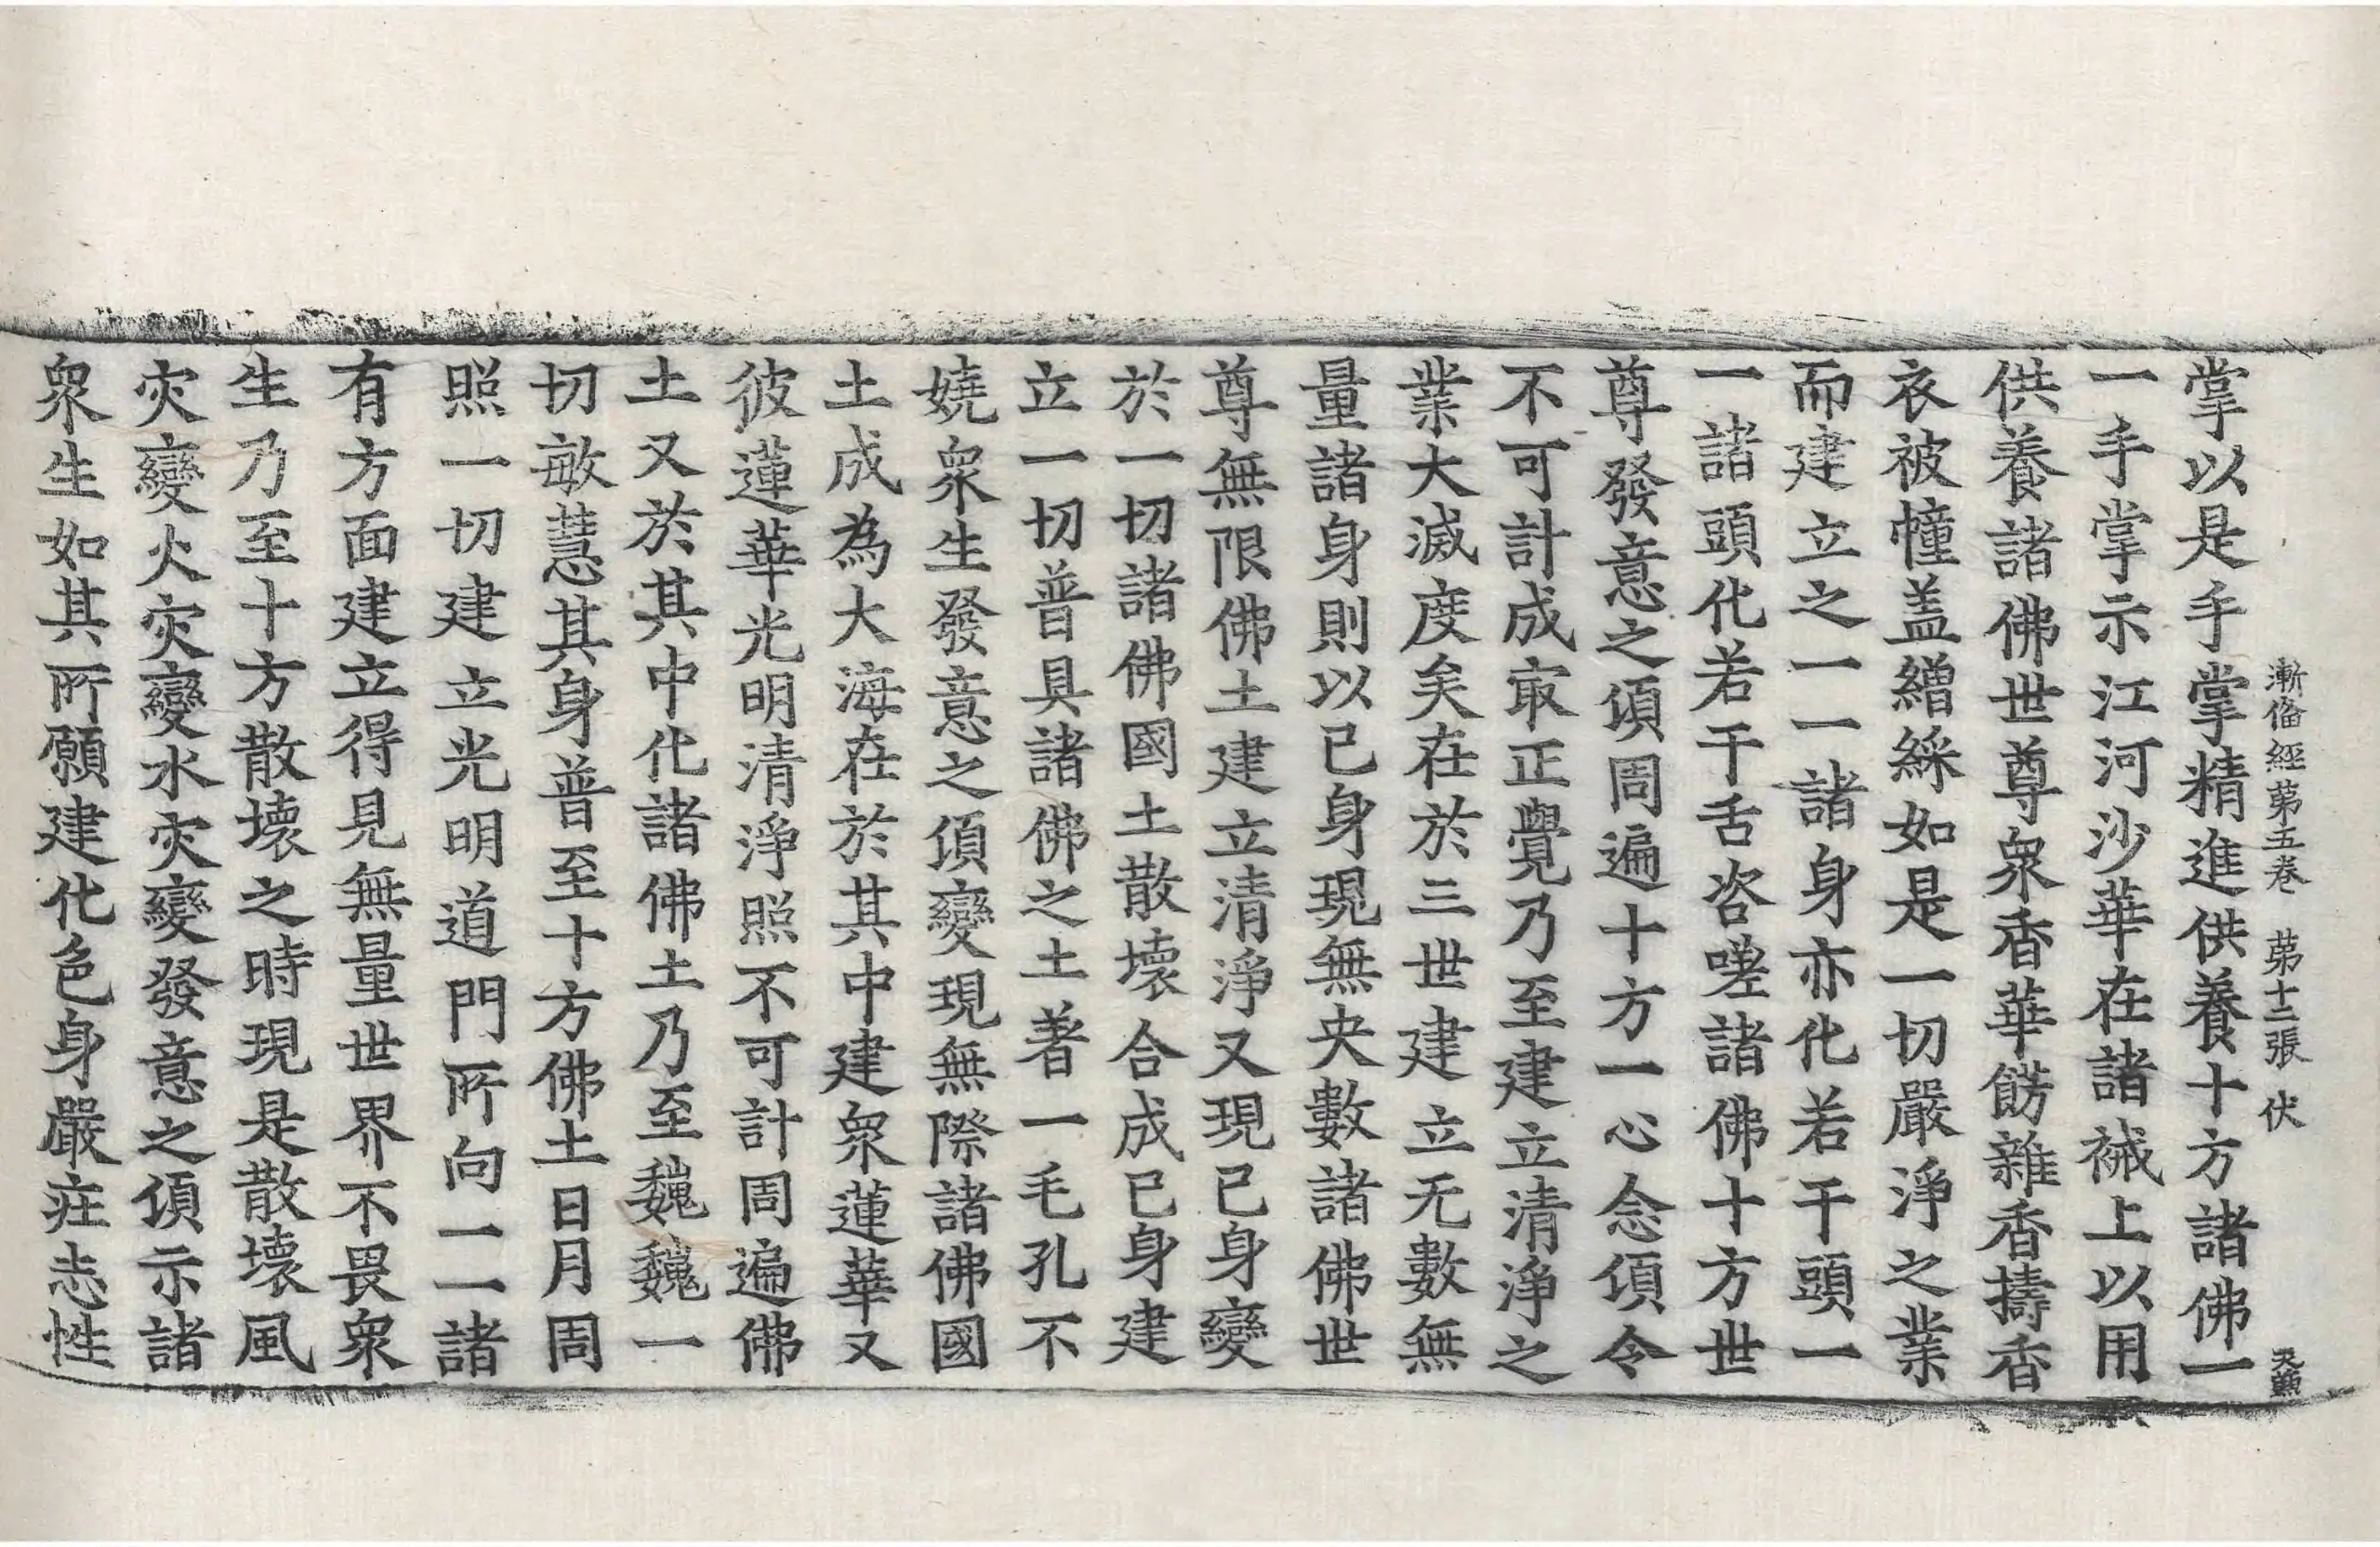 漸偹經第五卷　第十二張　伏
掌以是手掌精進供養十方諸佛一
一手掌示江河沙華在諸裓上以用
供養諸佛世尊衆香華餝雜香擣香
衣被幢盖繒綵如是一切嚴淨之業
而建立之一一諸身亦化若干頭一
一諸頭化若干舌咨嗟諸佛十方世
尊發意之頃周遍十方一心念頃令
不可計成㝡正覺乃至建立清淨之
業大滅度矣在於三世建立无數無
量諸身則以已身現無央數諸佛世
尊無限佛土建立清淨又現已身變
於一切諸佛國土散壞合成已身建
立一切普具諸佛之土著一毛孔不
嬈衆生發意之頃變現無際諸佛國
土成為大海在於其中建衆蓮華又
彼蓮華光明清淨照不可計周遍佛
土又於其中化諸佛土乃至巍巍一
切敏慧其身普至十方佛土日月周
照一切建立光明道門所向一一諸
有方面建立得見無量世界不畏衆
生乃至十方散壞之時現是散壞風
灾變火灾變水灾變發意之頃示諸
衆生如其所願建化色身嚴庄志性